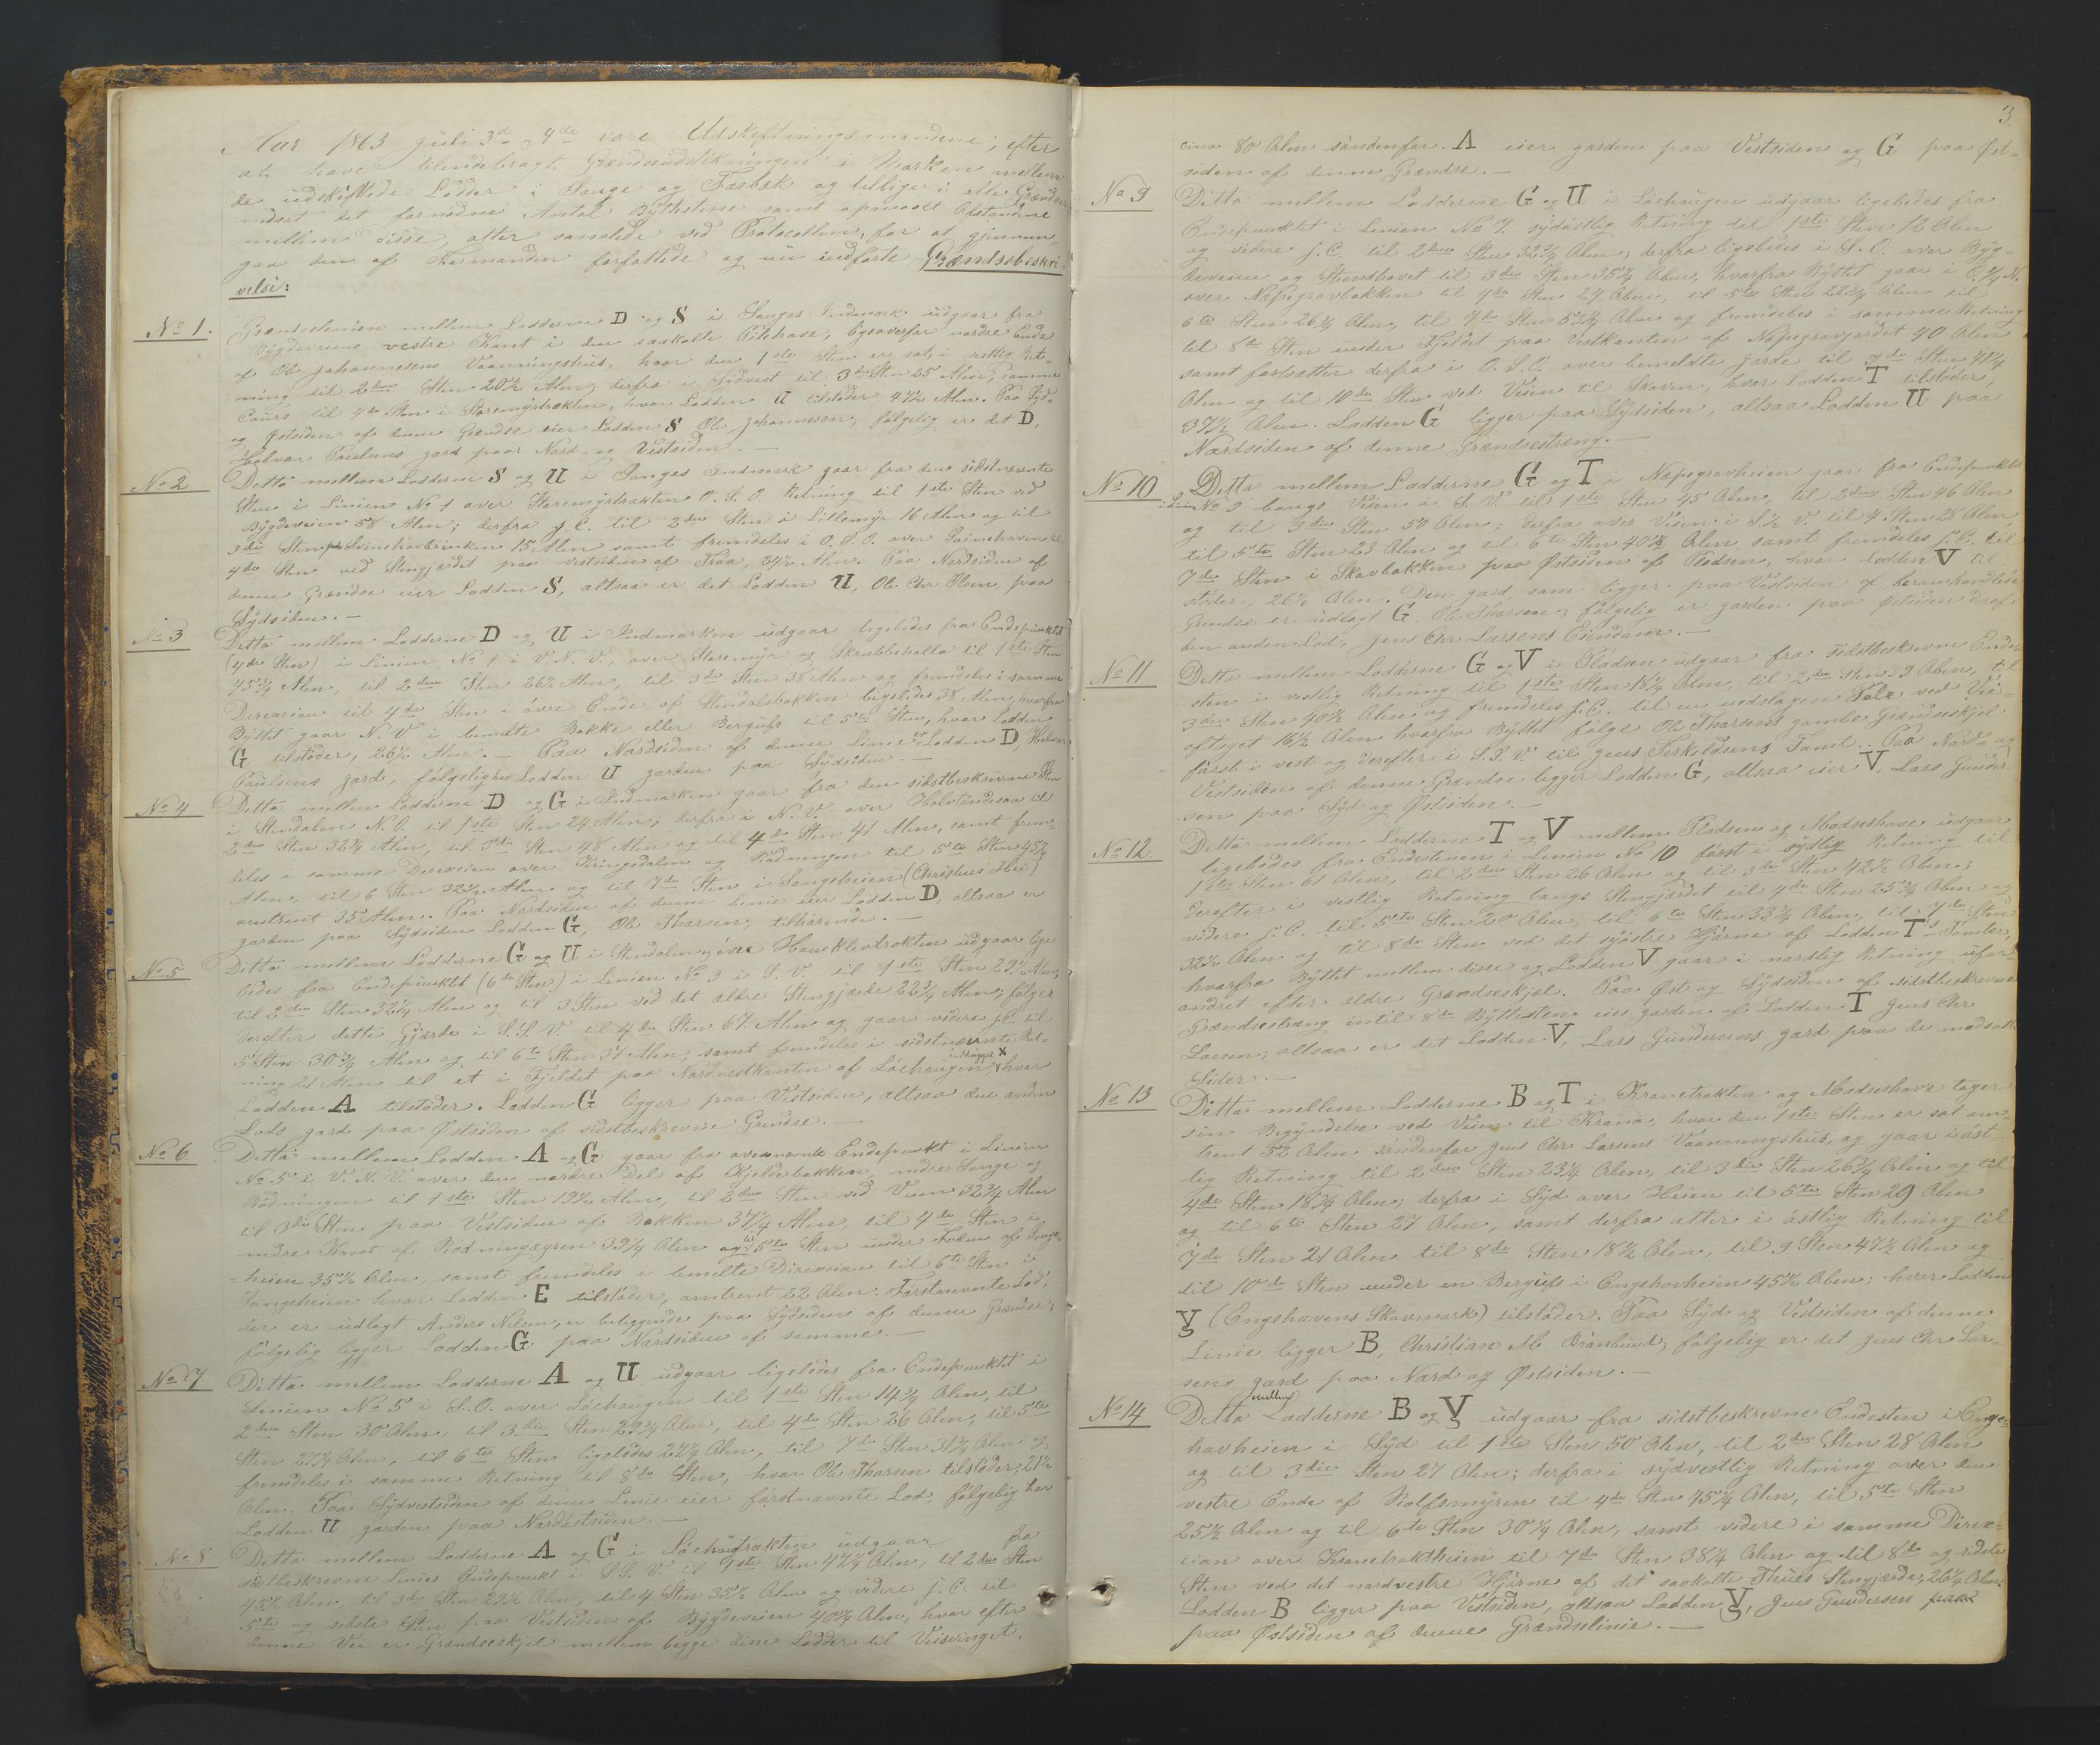 Aar 1863 Juli 3de og 4de vare Udskiftningsmændene, efter
at have tilendebragt Grændseudstikningen i Marken mellem
de udskiftede Lodder i Songe og Fosbæk og tillige i alle Grændser
nedsat det fornødne Antal Byttestene samt opmaalt Afstandene
mellem disse, atter samlede ved Protocollen, for at gjennem-
gaa den af Formanden forfattede og nu indførte Grændsebeskri-
velse:
No 1. Grændselinien mellem Lodderne D og S i Songes Indmark udgaar fra
Bygdeveiens vestre Kant i den saakalte Pilehave, ligeoverfor nordre Ende
af Ole Johannesens Vaaningshuus, hvor den 1ste Sten er sat, i vestlig Ret-
ning til 2den Sten 20½ Alen; derfra i Sydvest til 3die Sten 25 Alen, samme
Cours til 4de Sten i Staremyrtrakten, hvor Lodden U tilstøder 47½ Alen. Paa Syd-
og Østsiden af denne Grændse eier Lodden S Ole Johannesen, følgelig er det D,
Halvor Paulsens gard paa Nord- og Vestsiden. —
No 2 Ditto mellem Lodderne S og U i Songes Indmark gaar fra den sidstnævnte
Sten i Linien No 1 over Staremyrtrakten O.S.O. Retning til 1ste Sten ved
Bygdeveien 58 Alen; derfra f. C. til 2den Sten i Lillemyr 16 Alen og til
3die Sten paa Svinehavbrinken 15 Alen samt fremdeles i O.S.O. over Svinehaven til
4de Sten ved Stengjærdet paa vestsiden af Traa, 34½ Alen. Paa Nordsiden af
denne Grændse eier Lodden S, altsaa er det Lodden U, Ole Chr Olsen, paa
Sydsiden. —
No 3 Ditto mellem Lodderne D og U i Indmarken udgaar ligeledes fra Endepunktet
(4de Sten) i Linien No 1 i V.N.V., over Staremyr og Skrubbehalla til 1ste Sten
45¾ Alen, til 2den Sten 26½ Alen, til 3die Sten 38 Alen og fremdeles i samme
Direxion til 4de Sten i øvre Ende af Stendalsbakken ligeledes 38 Alen, hvorfra
Byttet gaar N.V i bemelte Bakke eller Bergufs til 5te Sten, hvor Lodden
G tilstøder, 26½ Alen. — Paa Nordsiden af denne Linie er Lodden D, Halvor
Paulsens gard, følgelig har Lodden U garden paa Sydsiden. —
No 4 Ditto mellem Lodderne D og G i Indmarken gaar fra den sidstbeskrevne Sten
i Stendalen N.O. til 1ste Sten 24 Alen; derfra i N.V. over Halvtendesaa til
2den Sten 32¼ Alen, til 3die Sten 48 Alen og til 4de Sten 41 Alen, samt frem-
deles i samme Direxion over Kringsdalen og Rødningen til 5te Sten 45½
Alen, til 6 Sten 32½ Alen og til 7de Sten i Songeheien (Christines Hei)
omtrent 35 Alen. Paa Nordsiden af denne Linie eier Lodden D, altsaa er
garden paa Sydsiden Lodden G, Ole Tharsen, tilhørende. —
No 5 Ditto mellem Lodderne G og U i Stendalen og øvre Haueklevtrakten udgaar lige-
ledes fra Endepunktet (5te Sten) i Linien No 3 i S.V. til 1ste Sten 29½ Alen,
til 2den Sten 32¼ Alen og til 3 Sten ved det ældre Stengjærde 22¾ Alen; følger
derefter dette Gjærde i S.S.V. til 4de Sten 67 Alen og gaar videre f.C. til
5 Sten 30¾ Alen og til 6te Sten 37 Alen, samt fremdeles i sidstnævnte Ret-
ning 21 Alen til et i Fjeldet paa Nordvestkanten af Løehaugen indhugget X hvor
Lodden A tilstøder. Lodden G ligger paa Vestsiden, altsaa den anden
Lods gard paa Østsiden af sidstbeskrevne Grændse. —
No 6 Ditto mellem Lodden A og G gaar fra ovennævnte Endepunkt i Linien
No 5 i V.N.V. over den nordre Del af Kjelderbakken, nedre Songe og
Rødningen til 1ste Sten 19½ Alen, til 2den Sten ved Veien 32¾ Alen
til 3die Sten paa Vestsiden af Bakken 37¼ Alen, til 4de Sten i
nedre Kant af Rødningsgren 39¼ Alen og til 5te Sten under Foden af Songe-
heien 35½ Alen, samt fremdeles i bemelte Direxion til 6te Sten i
Songeheien hvor Lodden E tilstøder, omtrent 22 Alen. Førstnævnte Lod,
der er udlagt Anders Nilsen, er beliggende paa Sydsiden af denne Grændse;
følgelig ligger Lodden G paa Nordsiden af samme. —
No 7 Ditto mellem Lodderne A og U udgaar ligeledes fra Endepunktet i
Linien No 5 i S.O. over Løehaugen til 1ste Sten 14¾ Alen, til
2den Sten 30 Alen, til 3die Sten 29¼ Alen, til 4de Sten 26 Alen, til 5te
Sten 27¼ Alen, til 6te Sten ligeledes 27½ Alen, til 7de Sten 31¾ Alen og
fremdeles i samme Retning til 8de Sten, hvor Ole Tharsen tilstøder, 21½
Alen. Paa Sydvestsiden af denne Linie eier førstnævnte Lod, følgelig har
Lodden U garden paa Nordøstsiden. —
No 8. Ditto mellem Lodderne A og G i Løehaugtrakten udgaar fra
sidstbeskrevne Linies Endepunkt i S.S.V. til 1ste Sten 47½ Alen, til 2den Sten
45½ Alen, til 3die Sten 29½ Alen, til 4 Sten 35½ Alen og videre f.C. til
5te og sidste Sten paa Vestsiden af Bygdeveien 40¼ Alen, hvor efter
denne Vei er Grændseskjel mellem begge disse Lodder til Veisvinget,
3
circa 80 Alen søndenfor. A eier garden paa Vestsiden og G paa Øst-
siden af denne Grændse. —
No 9 Ditto mellem Lodderne G og U i Løehaugen udgaar ligeledes fra
Endepunktet i Linien No 7. sydøstlig Retning til 1ste Sten 12 Alen
og videre f.C. til 2den Sten 32¾ Alen; derfra ligeledes i S.O. over Byg-
deveien og Strandhavet til 3die Sten 35¼ Alen, hvorfra Byttet gaar i O.¼N.
over Næpegravbakken til 4de Sten 27 Alen, til 5te Sten 22¾ Alen til
6te Sten 26¾ Alen, til 7de Sten 53¼ Alen og fremdeles i samme Retning
til 8de Sten under Fjeldet paa Vestkanten af Næpegravjordet 40 Alen
samt fortsætter derfra i O.S.O. over bemeldte Jorde til Sten 41¼
Alen og til 10de Sten ved Veien til Skoven, hvor Lodden T tilstøder,
37½ Alen. Lodden G ligger paa Sydsiden, altsaa Lodden U paa
Nordsiden af denne Grændsestræng. —
No 10 Ditto mellem Lodderne G og T i Næpegravheien gaar fra Endepunktet
i Linien No 9 langs Veien i S.V. til 1ste Sten 45 Alen, til 2den Sten 46 Alen
og til 3die Sten 50 Alen; derfra over Veien i S.½V. til 4 Sten 28 Alen,
til 5te Sten 23 Alen og til 6te Sten 40½ Alen samt fremdeles f.C. til
7de Sten i Skovbakken paa Østsiden af Pladsen, hvor Lodden V til-
støder, 26½ Alen. Den gard, som ligger paa Vestsiden af heromhandlede
Grændse er udlagt G. Ole Tharsen; følgelig er garden paa Østsiden deraf
den anden Lod, Jens Chr Larsens Eiendom. —
No 11 Ditto mellem Lodderne G og V i Pladsen udgaar fra sidstbeskrevne Ende-
sten i vestlig Retning til 1ste Sten 18¼ Alen, til 2den Sten 39 Alen, til
3die Sten 40½ Alen og fremdeles f.C. til en nedslagen Pæle ved Vei-
optoget 16½ Alen hvorfra Byttet følge Ole Tharsens gamle Grændseskjel
først i vest og derefter i S.S.V. til Jens Terkeldsens Tomt. Paa Nord- og
Vestsiden af denne Grændse ligger Lodden G, altsaa eier V, Lars Gunder-
sen paa Syd og Østsiden. —
No 12 Ditto mellem Lodderne T og V mellem Pladsen og Madseshave udgaar
ligeledes fra Endestenen i Linien No 10 først i sydlig Retning til
1ste Sten 61 Alen, til 2den Sten 26 Alen og til 3die Sten 42½ Alen;
derefter i vestlig Retning langs Stengjærdet til 4de Sten 25¾ Alen og
videre f.C. til 5te Sten 20 Alen, til 6te Sten 33¾ Alen, til 7de Sten
32½ Alen og til 8de Sten ved det syøstre Hjørne af Lodden T's Tomter,
hvorfra Byttet mellem disse og Lodden V gaar i nordlig Retning ufor-
andret efter ældre Grændseskjel. Paa Øst og Sydsiden af sidstbeskrevne
Grændsestræng intil 8de Byttesten eies garden af Lodden T Jens Chr
Larsen; altsaa er det Lodden V, Lars Gundersens gard paa de modsatte
Sider. —
No 13 Ditto mellem Lodderne B og T i Kranetrakten og Madseshave tager
sin Begyndelse ved Veien til Krana, hvor den 1ste Sten er sat om-
trent 52 Alen søndenfor Jens Chr Larsens Vaaningshus, og gaar i øst-
lig Retning til 2den Sten 23¼ Alen, til 3die Sten 26¾ Alen og til
4de Sten 18¾ Alen; derfra i Syd over Heien til 5te Sten 29 Alen
og til 6te Sten 27 Alen, samt derfra atter i østlig Retning til
7de Sten 21 Alen til 8de Sten 18½ Alen, til 9 Sten 47½ Alen og
til 10de Sten under en Bergufs i Engehavheien 45½ Alen; hvor Lodden
V (Engehavens Skovmark) tilstøder. Paa Syd og Vestsiden af denne
Linie ligger B, Christian M Brønlund; følgelig er det Jens Chr Lar-
sens gard paa Nord og Østsiden. —
No 14 Ditto mellem Lodderne B og V udgaar fra sidstbeskrevne Endesten i Enge-
havheien i Syd til 1ste Sten 50 Alen, til 2den Sten 28 Alen
og til 3die Sten 27 Alen; derfra i sydvestlig Retning over den
vestre Ende af Rolfsmyren til 4de Sten 45¼ Alen, til 5te Sten
25½ Alen og til 6te Sten 30¼ Alen, samt videre i samme Direx-
ion over Kranetraktheien til 7de Sten 38¼ Alen og til 8de og sidste
Sten ved det nordvestre Hjørne af det saakalte Thues Stengjærde, 26¼ Alen.
Lodden B ligger paa Vestsiden, altsaa Lodden V, Jens Gundersen paa
paa Østsiden af denne Grændselinie. —